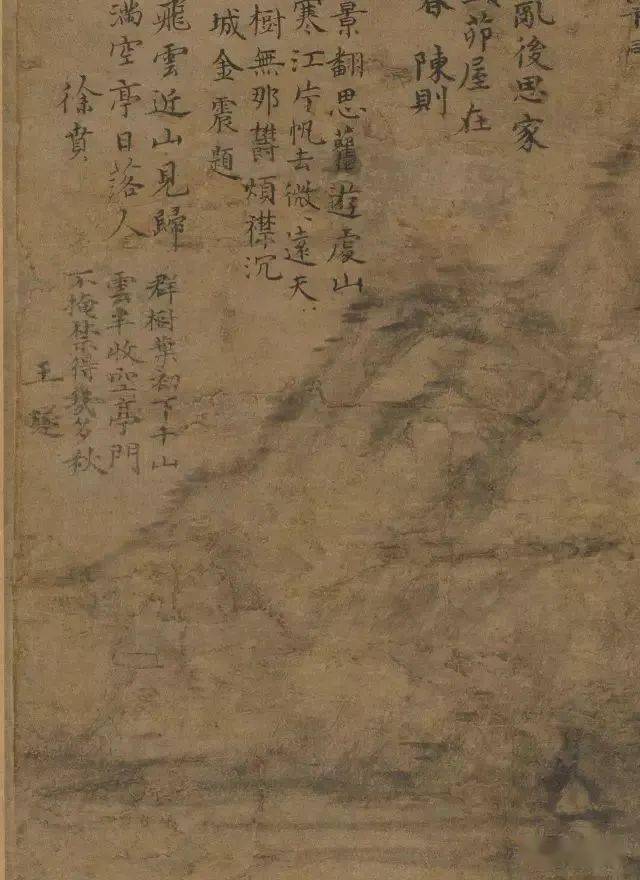 亂後思家
茆屋在
春 陳則
景翻思舊遊虞山
寒江片帆去微、遠天
樹無那鬱煩襟沉
城金震題
飛雲近山見歸
滿空亭日落人
徐賁
群樹葉初下千山
雲半收空亭門
不掩禁得幾多秋
王璲